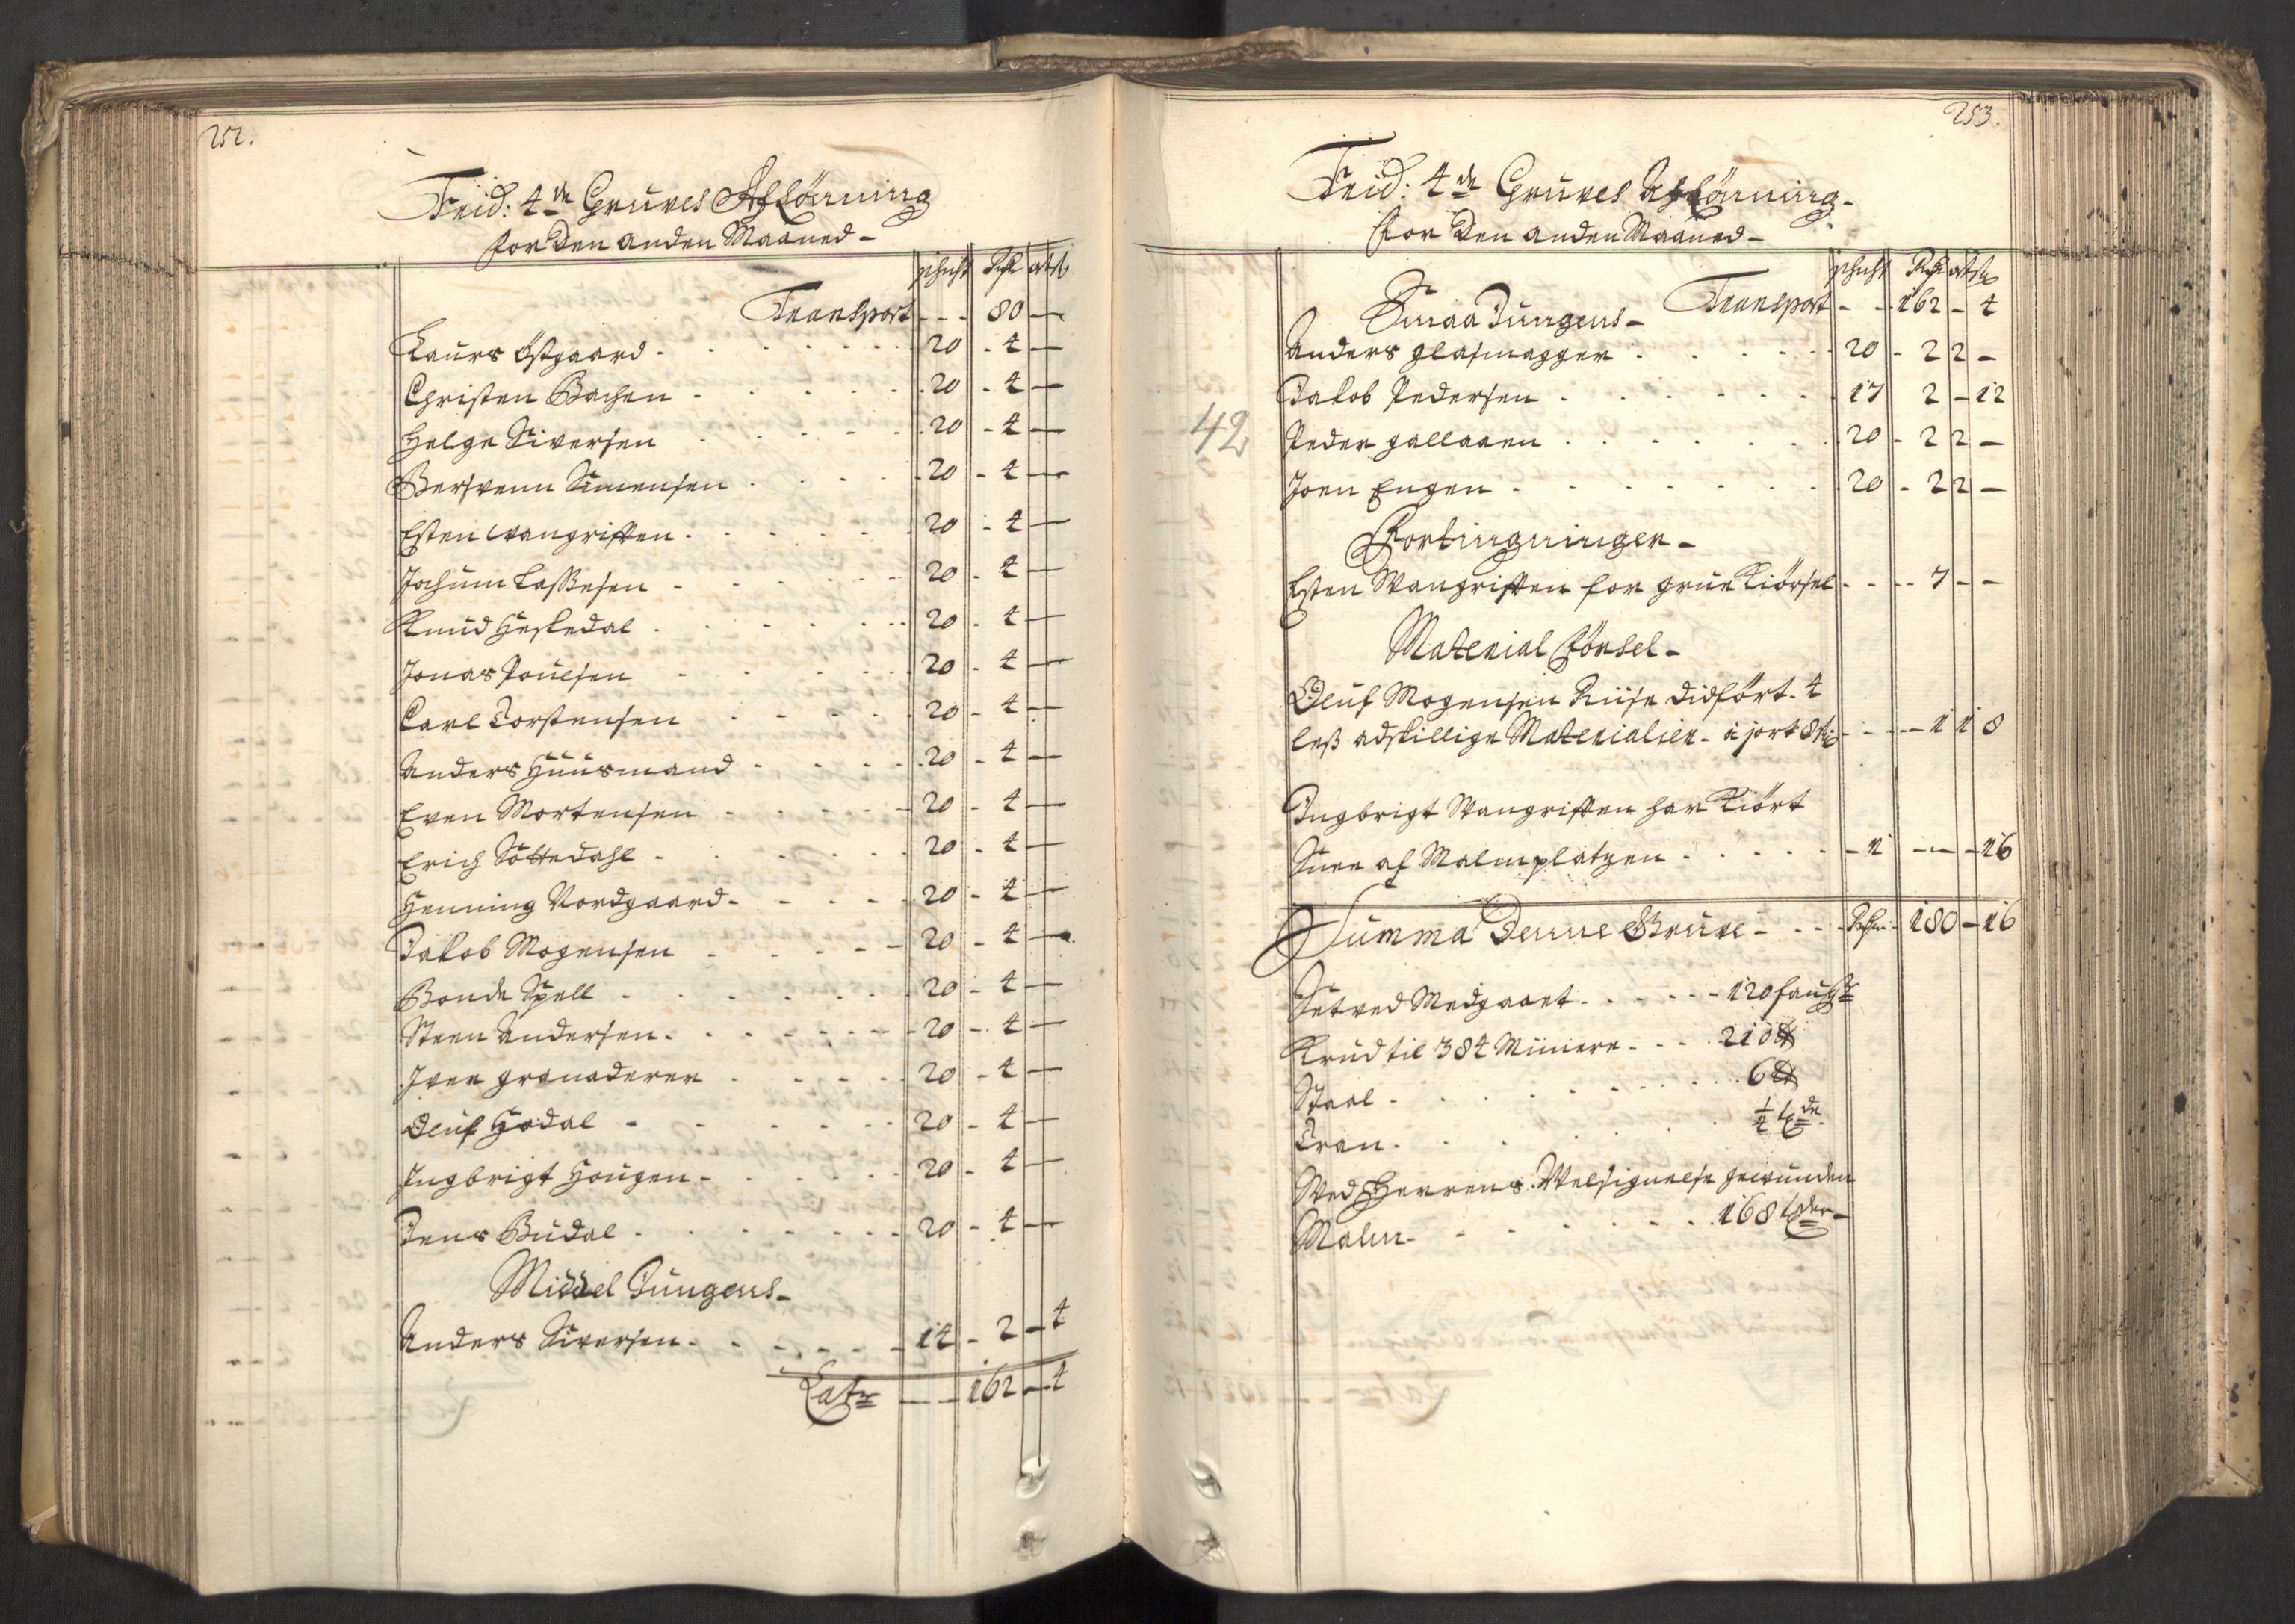 252.
Frid: 4de Gruves Aflönning
for den anden Maaned -
schicht Rchl ort ß
Transport - - - 80 -
Laurs Östgaard - 20 - 4 -
Christen Bachen - 20 - 4 -
Helge Siversen - 20 - 4 -
Bersvenn Simensen - 20 - 4 -
Esten Wangriften - 20 - 4 -
Jochum Lassesen - 20 - 4 -
Knud Heskedal - 20 - 4 -
Jonas Pouelsen - 20 - 4 -
Carl Torstensen - 20 - 4 -
Anders Huusmand - 20 - 4 -
Even Mortensen - 20 - 4 -
Erich Söttedahl - 20 - 4 -
Henning Nordgaard - 20 - 4 -
Jakob Mogensen - 20 - 4 -
Bonde Spell - 20 - 4 -
Steen Andersen - 20 - 4 -
Iver granaderer - 20 - 4 -
Oluf Hodal - 20 - 4 -
Ingbrigt Hougen - 20 - 4 -
Jens Budal - 20 - 4 -
Middel Jungens -
Anders Siversen - 14 - 2 - 4
Latr - - 162 - 4
253.
Frid: 4de Gruves Aflönning -
for den anden Maaned -
schicht Rchl ort ß
Transport - - 162 - 4
Smaa Jungens -
Anders glasmagger - 20 - 2 2 -
Jakob Pedersen - 17 2 - 12
42
Peder gallaaen - 20 - 2 2 -
Joen Engen - 20 - 2 2 -
Fortingninger -
Esten Wangriften for grue Kiörsel - - 7 - -
Material försel -
Oluf Mogensen Riise didfört 4
less adskillige Materialier - á jort 8 - - 1 1 8
Ingbrigt Wangriften har Kiört
Snee af Malmplatzen - 1 - - 16
Summa Denne Gruve - - - Rchr 180 - 16
Setved Medgaaet - 120 faufr
Krud til 384 Miinere - 210 ℔
Staal - 6 ℔
Tran - ¼ tde
Ved Herrens Velsignelse gewunden
Malm - 168 tder -